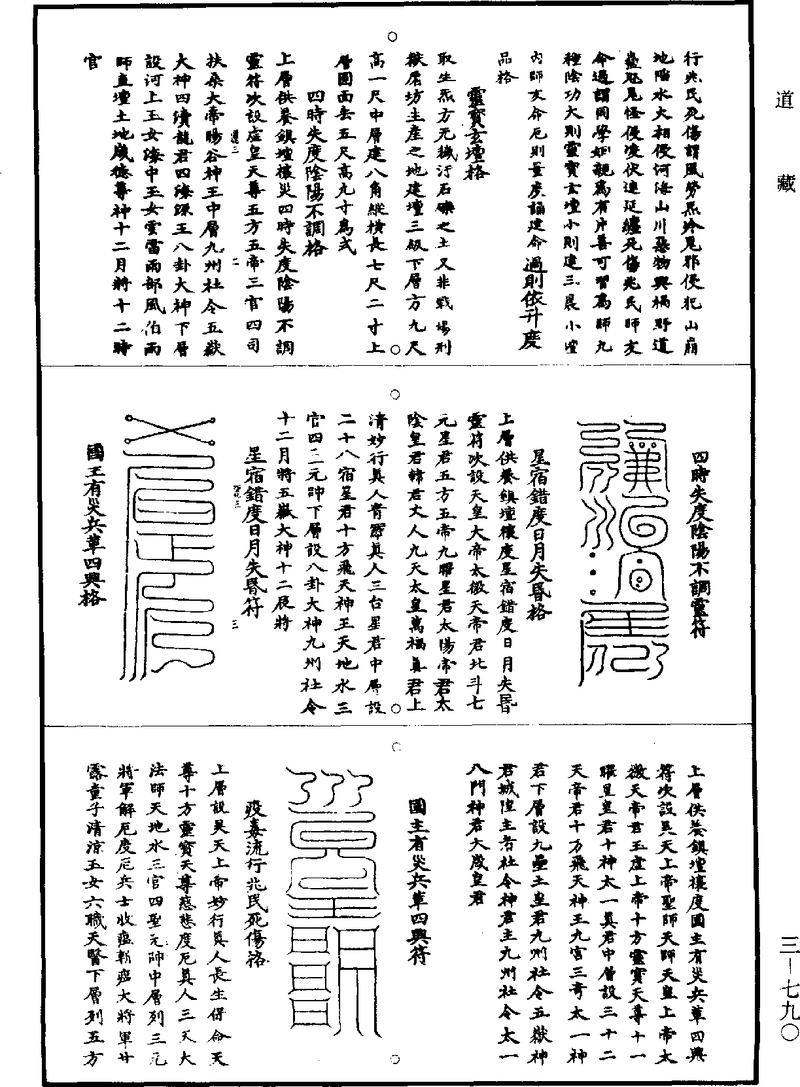 道藏
行兆民死傷謂風勞炁冷鬼邪侵犯山崩
地陷水火相侵河海山川藥物興禍野道
蠱尫鬼怪侵凌伏連延纏死傷兆民師友
命過謂同學姻親為有片善可習為師九
種陰功大則靈寶玄壇小則建三晨小壇
內師友命厄則量度誦建命過則依升度
品格
靈寶玄壇格
取生炁方无穢汙石礫之土又非戰場刑
獄屠坊生產之地建壇三級下層方九尺
高一尺中層建八角縱橫長七尺二寸上
層圓面去五尺高九寸為式
四時失度陰陽不調格
上層供養鎮壇禳災四時失度陰陽不調
靈符次設虛皇天尊五方五帝三官四司
扶桑大帝暘谷神王中層九州社令五嶽
大神四瀆龍君四海源王八卦大神下層
設河上玉女海中玉女雲雷雨部風伯雨
師直壇土地歲德尊神十二月將十二時
官
四時失度陰陽不調靈符
星宿錯度日月失昏格
上層供養鎮壇禳度星宿錯度日月失昏
靈符次設天皇大帝太微天帝君北斗七
元星君五方五帝九曜星君太陽帝君太
陰皇君韓君丈人九天太皇萬福真君上
清妙行真人普照真人三台星君中層設
二十八宿星君十方飛天神王天地水三
官四元帥下層設八卦大神九州社令
十二月將五嶽大神十二辰將
星宿錯度日月失昏符
國王有災兵革四興格
上層供養鎮壇禳度國主有災兵革四興
符次設昊天上帝聖師天師天皇上帝太
微天帝君玉虛上帝十方靈寶天尊十一
曜星皇君十神太一真君中層設三十二
天帝君十方飛天神王九宮三奇太一神
君下層設九壘土皇君九州社令五嶽神
君城隍主者社令神君主九州社令太一
八門神君大歲皇君
國主有災兵革四興符
疫毒流行兆民死傷格
上層設昊天上帝妙行真人長生保命天
尊十方靈寶天尊慈悲度厄真人三天大
法師天地水三官四聖元帥中層列三元
將軍解厄度厄兵士收瘟斬瘟大將軍甘
露童子清涼玉女六職天醫下層列五方
三—七九〇